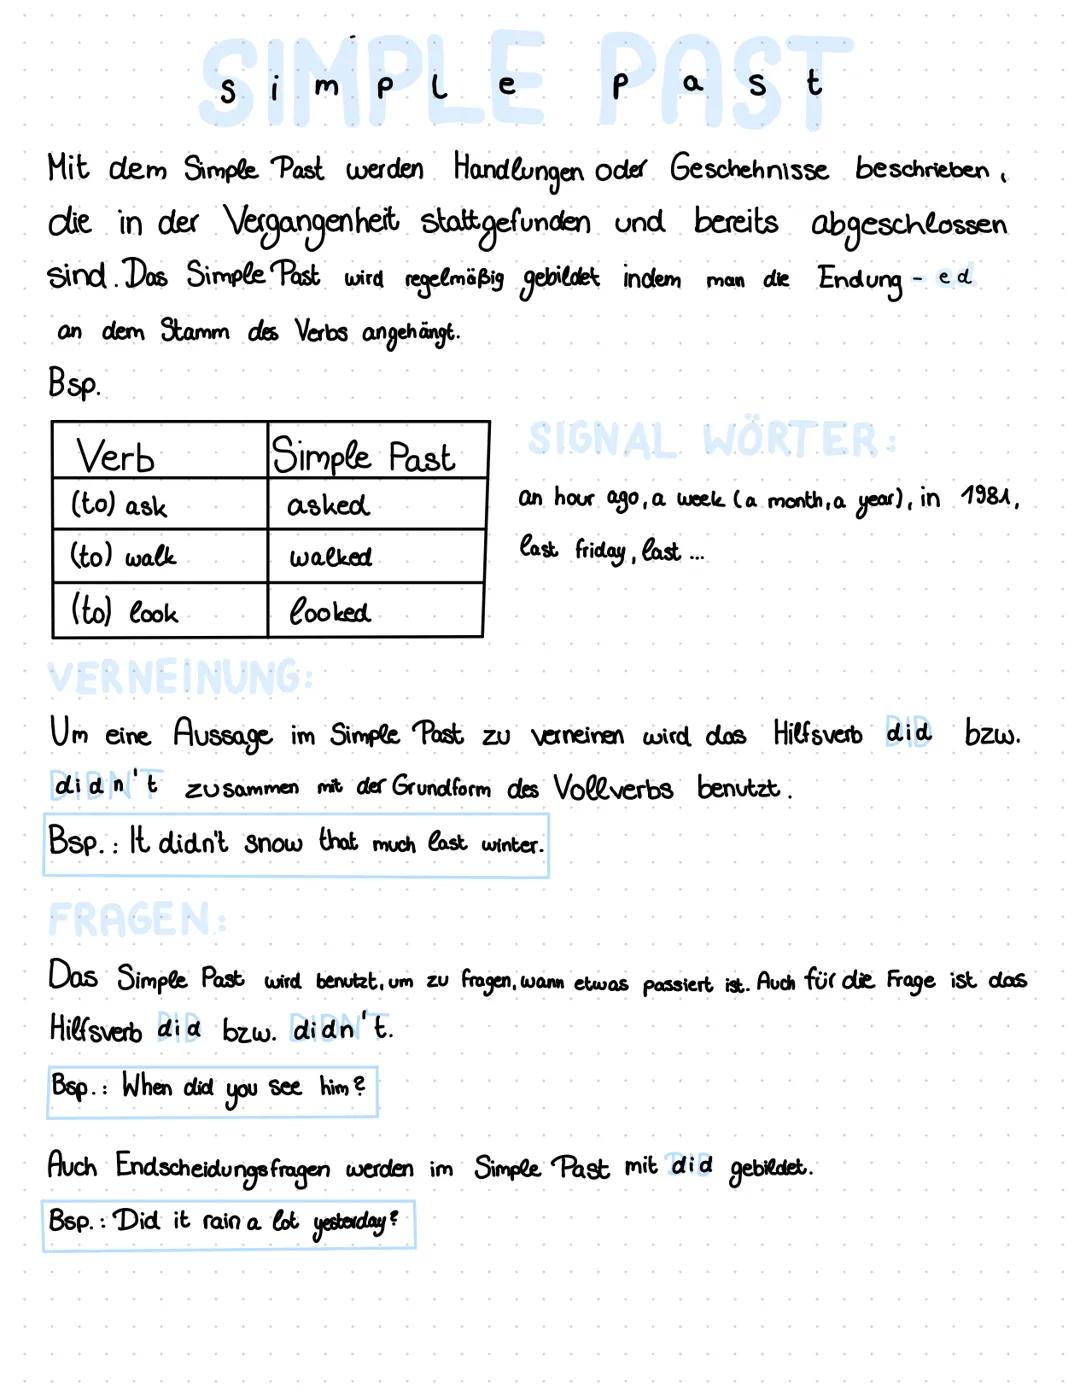 SIMPLE PAST
simple past
Mit dem Simple Past werden Handlungen oder Geschehnisse beschrieben,
die in der Vergangenheit stattgefunden und bereits abgeschlossen
sind. Das Simple Past wird regelmäßig gebildet indem man die Endung - ed
an dem Stamm des Verbs angehängt.
Bsp.
Verb Simple Past
(to) ask asked
(to) walk walked
(to) look looked
SIGNAL WÖRTER:
an hour ago, a week (a month, a year), in 1981,
last friday, last ...
VERNEINUNG:
Um eine Aussage im Simple Past zu verneinen wird das Hilfsverb did bzw.
didn't zusammen mit der Grundform des Vollverbs benutzt.
Bsp.: It didn't snow that much last winter.
FRAGEN:
Das Simple Past wird benutzt, um zu fragen, wann etwas passiert ist. Auch für die Frage ist das
Hilfsverb did bzw. didn't.
Bsp.: When did you see him?
Auch Endscheidungsfragen werden im Simple Past mit did gebildet.
Bsp.: Did it rain a lot yesterday?